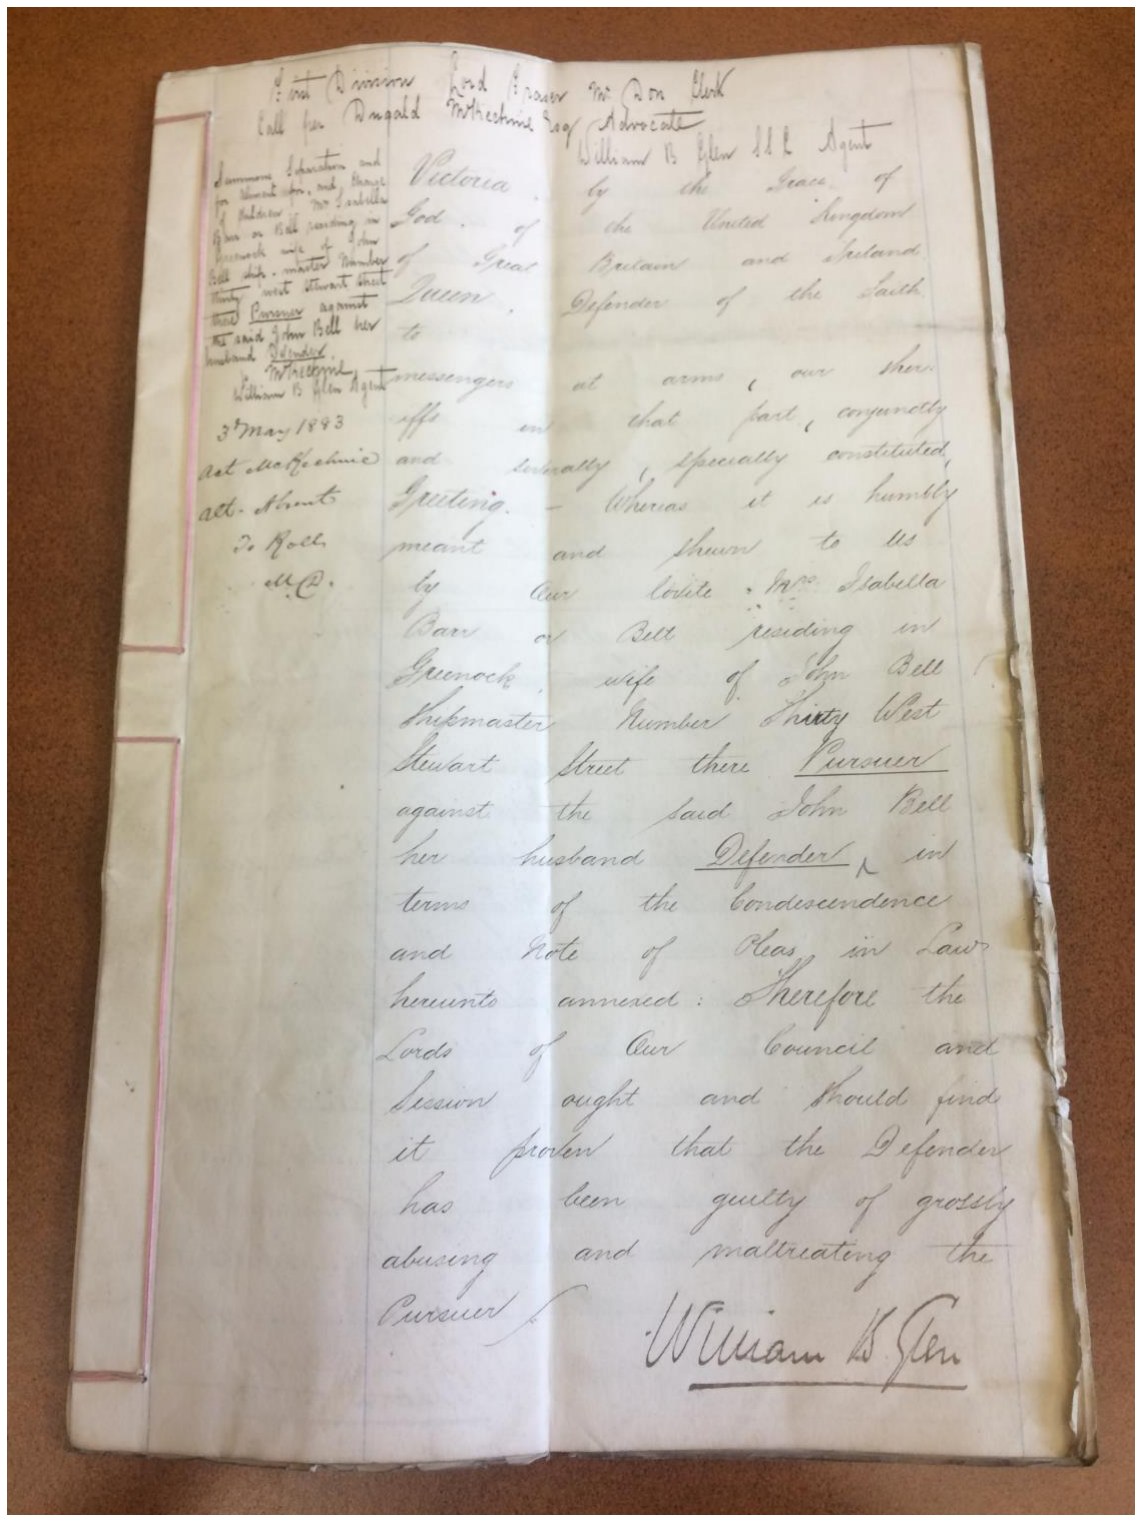 First Division Lord Fraser Mr Don Clerk
Call per Dugald McKechnie Esq Advocate
William B Glen SSC Agent
Summons Separation and
for Aliment for, and,
of Children Mrs Isabella
Barr or Bell residing in
Greenock wife of John
Bell ship-master Number
thirty west Stewart Street
there Pursuer against
the said John Bell her
husband Defender.
McKechnie,
William B Glen Agent
3d May 1883
Act McKechnie
Alt. Absent
To Roll
M.D.
Victoria, by the Grace of
God, of the United Kingdom
of Great Britain and Ireland
Queen, Defender of the Faith,
to
messengers at arms, our sher-
iffs in that part, conjunctly
and severally, specially constituted,
Greeting. - Whereas it is humbly
meant and shewn to Us
by Our lovite Mrs. Isabella
Barr or Bell residing in
Greenock, wife of John Bell
Shipmaster Number Thirty West
Stewart Street there Pursuer
against the said John Bell
her husband Defender, in
terms of the Condescendence
and Note of Pleas in Law
hereunto annexed: Therefore the
Lords of Our Council and
Session ought and should find
it proven that the Defender
has been guilty of grossly
abusing and maltreating the
Pursuer
William B. Glen